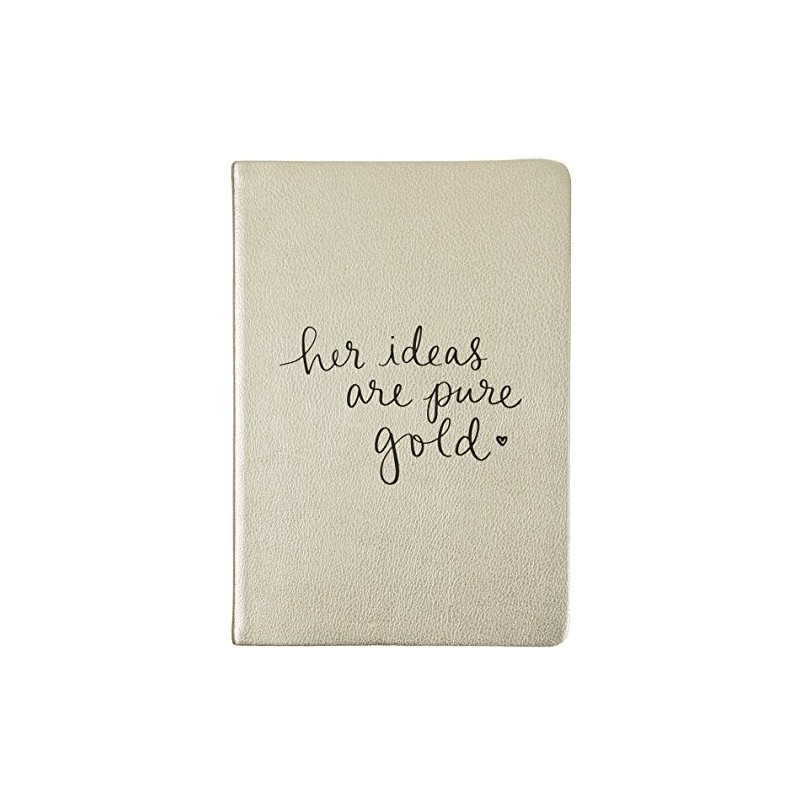 her ideas
are pure
gold